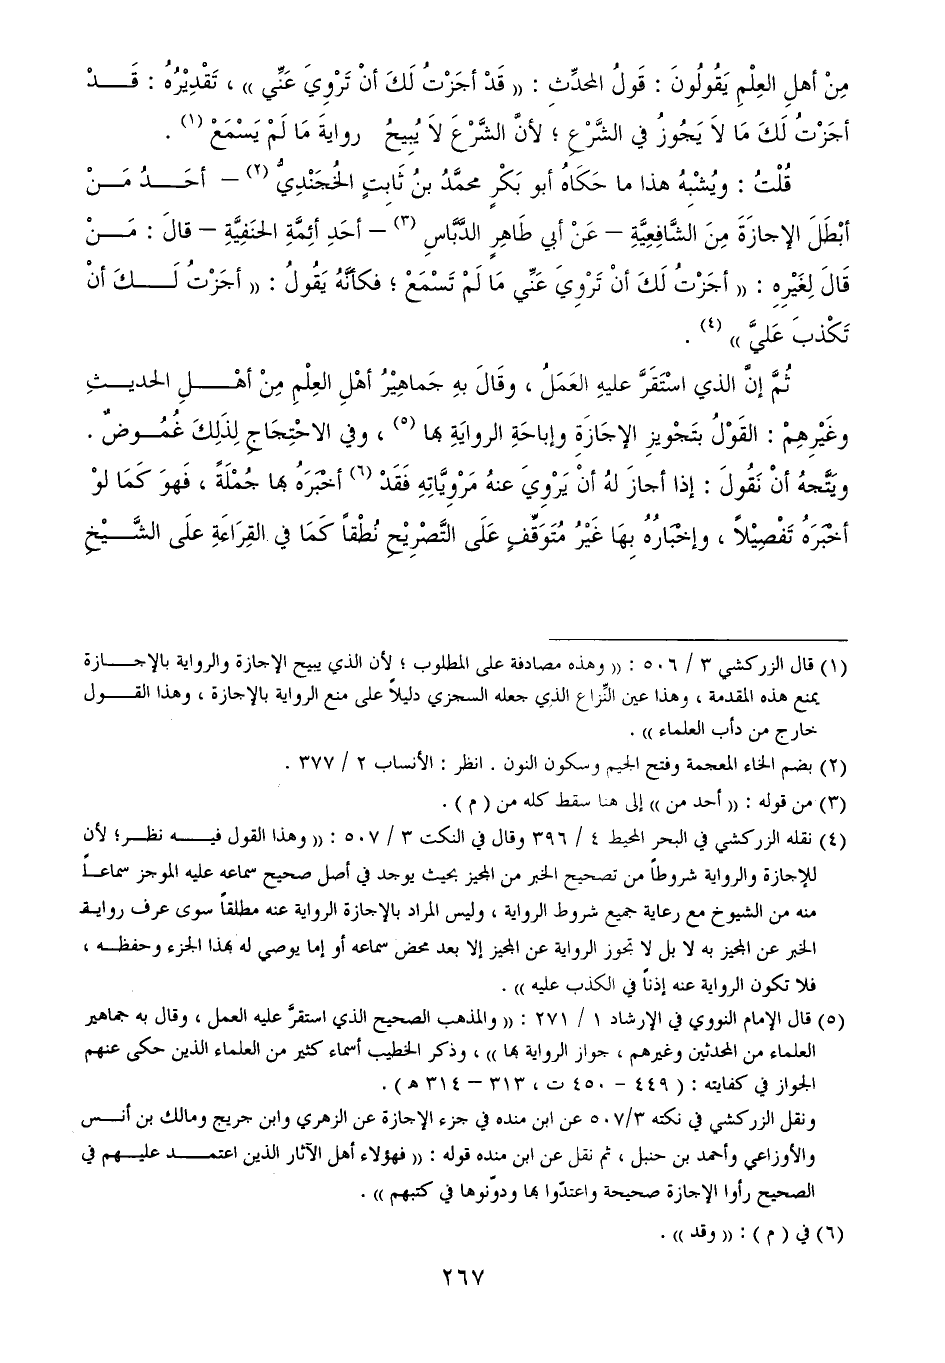 مِنْ أهلِ العِلْمِ يَقُولُونَ : قَولُ المحدِّثِ : (( قَدْ أجَزْتُ لَكَ أنْ تَرْوِيَ عَنِّي )) ، تَقْدِيْرُهُ : قَــدْ
أجَزْتُ لَكَ مَا لاَ يَجُوزُ في الشَّرْعِ ؛ لأنَّ الشَّرْعَ لاَ يُبيحُ روايةَ مَا لَمْ يَسْمَعْ (١) .
قُلْتُ : ويُشْبِهُ هذا ما حَكَاهُ أبو بَكْرٍ محمَّدُ بنُ ثَابتٍ الخُجَنْدِيُّ (٢) – أحَــدُ مَــنْ
أبْطَلَ الإجازَةَ مِنَ الشَّافِعِيَّةِ – عَنْ أبي طَاهِرٍ الدَّبَّاسِ (٣) – أحَدِ أئِمَّةِ الحَنَفِيَّةِ – قالَ : مَــنْ
قَالَ لِغَيْرِهِ : (( أجَزْتُ لَكَ أنْ تَرْوِيَ عَنِّي مَا لَمْ تَسْمَعْ ؛ فكأنَّهُ يَقُولُ : (( أجَزْتُ لَــكَ أنْ
تَكْذبَ عَلَيَّ )) (٤) .
ثُمَّ إنَّ الذي اسْتَقَرَّ عليهِ العَمَلُ ، وقَالَ بهِ جَماهِيْرُ أهْلِ العِلْمِ مِنْ أهْــلِ الحديــثِ
وغَيْرِهِمْ : القَوْلُ بتَجْويزِ الإجَازَةِ وإباحَةِ الروايَةِ بها (٥) ، وفي الاحْتِجَاجِ لِذَلِكَ غُمُــوضٌ .
ويَتَّجهُ أنْ نَقُولَ : إذا أجازَ لهُ أنْ يَرْوِيَ عنهُ مَرْوِيَّاتِهِ فَقَدْ (٦) أخْبَرَهُ بها جُمْلَةً ، فَهوَ كَمَا لوْ
أخْبَرَهُ تَفْصِيْلاً ، وإخْبَارُهُ بِهَا غَيْرُ مُتَوَقِّفٍ عَلَى التَّصْرِيْحِ نُطْقاً كَمَا في القِرَاءَةِ علَى الشَّــيْخِ
(١) قال الزركشي ٣ / ٥٠٦ : (( وهذه مصادفة على المطلوب ؛ لأن الذي يبيح الإجازة والرواية بالإجــازة
يمنع هذه المقدمة ، وهذا عين النّزاع الذي جعله السجزي دليلاً على منع الرواية بالإجازة ، وهذا القــول
خارج من دأب العلماء )) .
(٢) بضم الخاء المعجمة وفتح الجيم وسكون النون . انظر : الأنساب ٢ / ٣٧٧ .
(٣) من قوله : (( أحد من )) إلى هنا سقط كله من ( م ) .
(٤) نقله الزركشي في البحر المحيط ٤ / ٣٩٦ وقال في النكت ٣ / ٥٠٧ : (( وهذا القول فيــه نظــر؛ لأن
للإجازة والرواية شروطاً من تصحيح الخبر من المجيز بحيث يوجد في أصل صحيح سماعه عليه الموجز سماعــاً
منه من الشيوخ مع رعاية جميع شروط الرواية ، وليس المراد بالإجازة الرواية عنه مطلقاً سوى عرف روايــة
الخبر عن المجيز به لا بل لا تجوز الرواية عن المجيز إلا بعد محض سماعه أو إما يوصي له بهذا الجزء وحفظــه ،
فلا تكون الرواية عنه إذناً في الكذب عليه )) .
(٥) قال الإمام النووي في الإرشاد ١ / ٢٧١ : (( والمذهب الصحيح الذي استقرَّ عليه العمل ، وقال به جماهير
العلماء من المحدثين وغيرهم ، جواز الرواية بها )) ، وذكر الخطيب أسماء كثير من العلماء الذين حكى عنهم
الجواز في كفايته : ( ٤٤٩ – ٤٥٠ ت ، ٣١٣ – ٣١٤ ه ) .
ونقل الزركشي في نكته ٥٠٧/٣ عن ابن منده في جزء الإجازة عن الزهري وابن جريج ومالك بن أنــس
والأوزاعي وأحمد بن حنبل ، ثم نقل عن ابن منده قوله : (( فهؤلاء أهل الآثار الذين اعتمــد عليــهم في
الصحيح رأوا الإجازة صحيحة واعتدّوا بها ودوّنوها في كتبهم )) .
(٦) في ( م ) : (( وقد )) .
٢٦٧